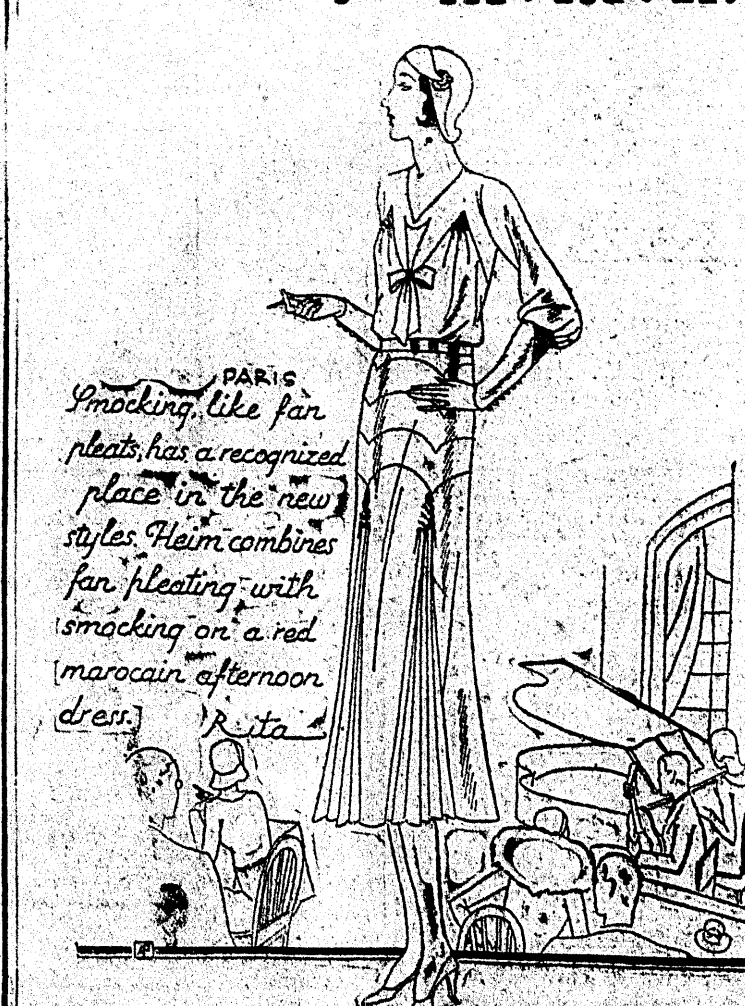 PARIS
Smocking, like fan
pleats, has a recognized
place in the new
styles. Heim combines
fan pleating with
smocking on a red
marocain afternoon
dress.
Rita